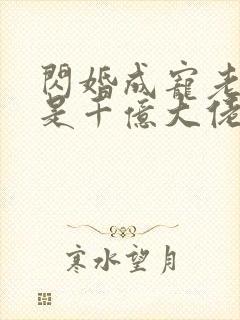 閃婚成寵老
是千億大佬
寒水望月